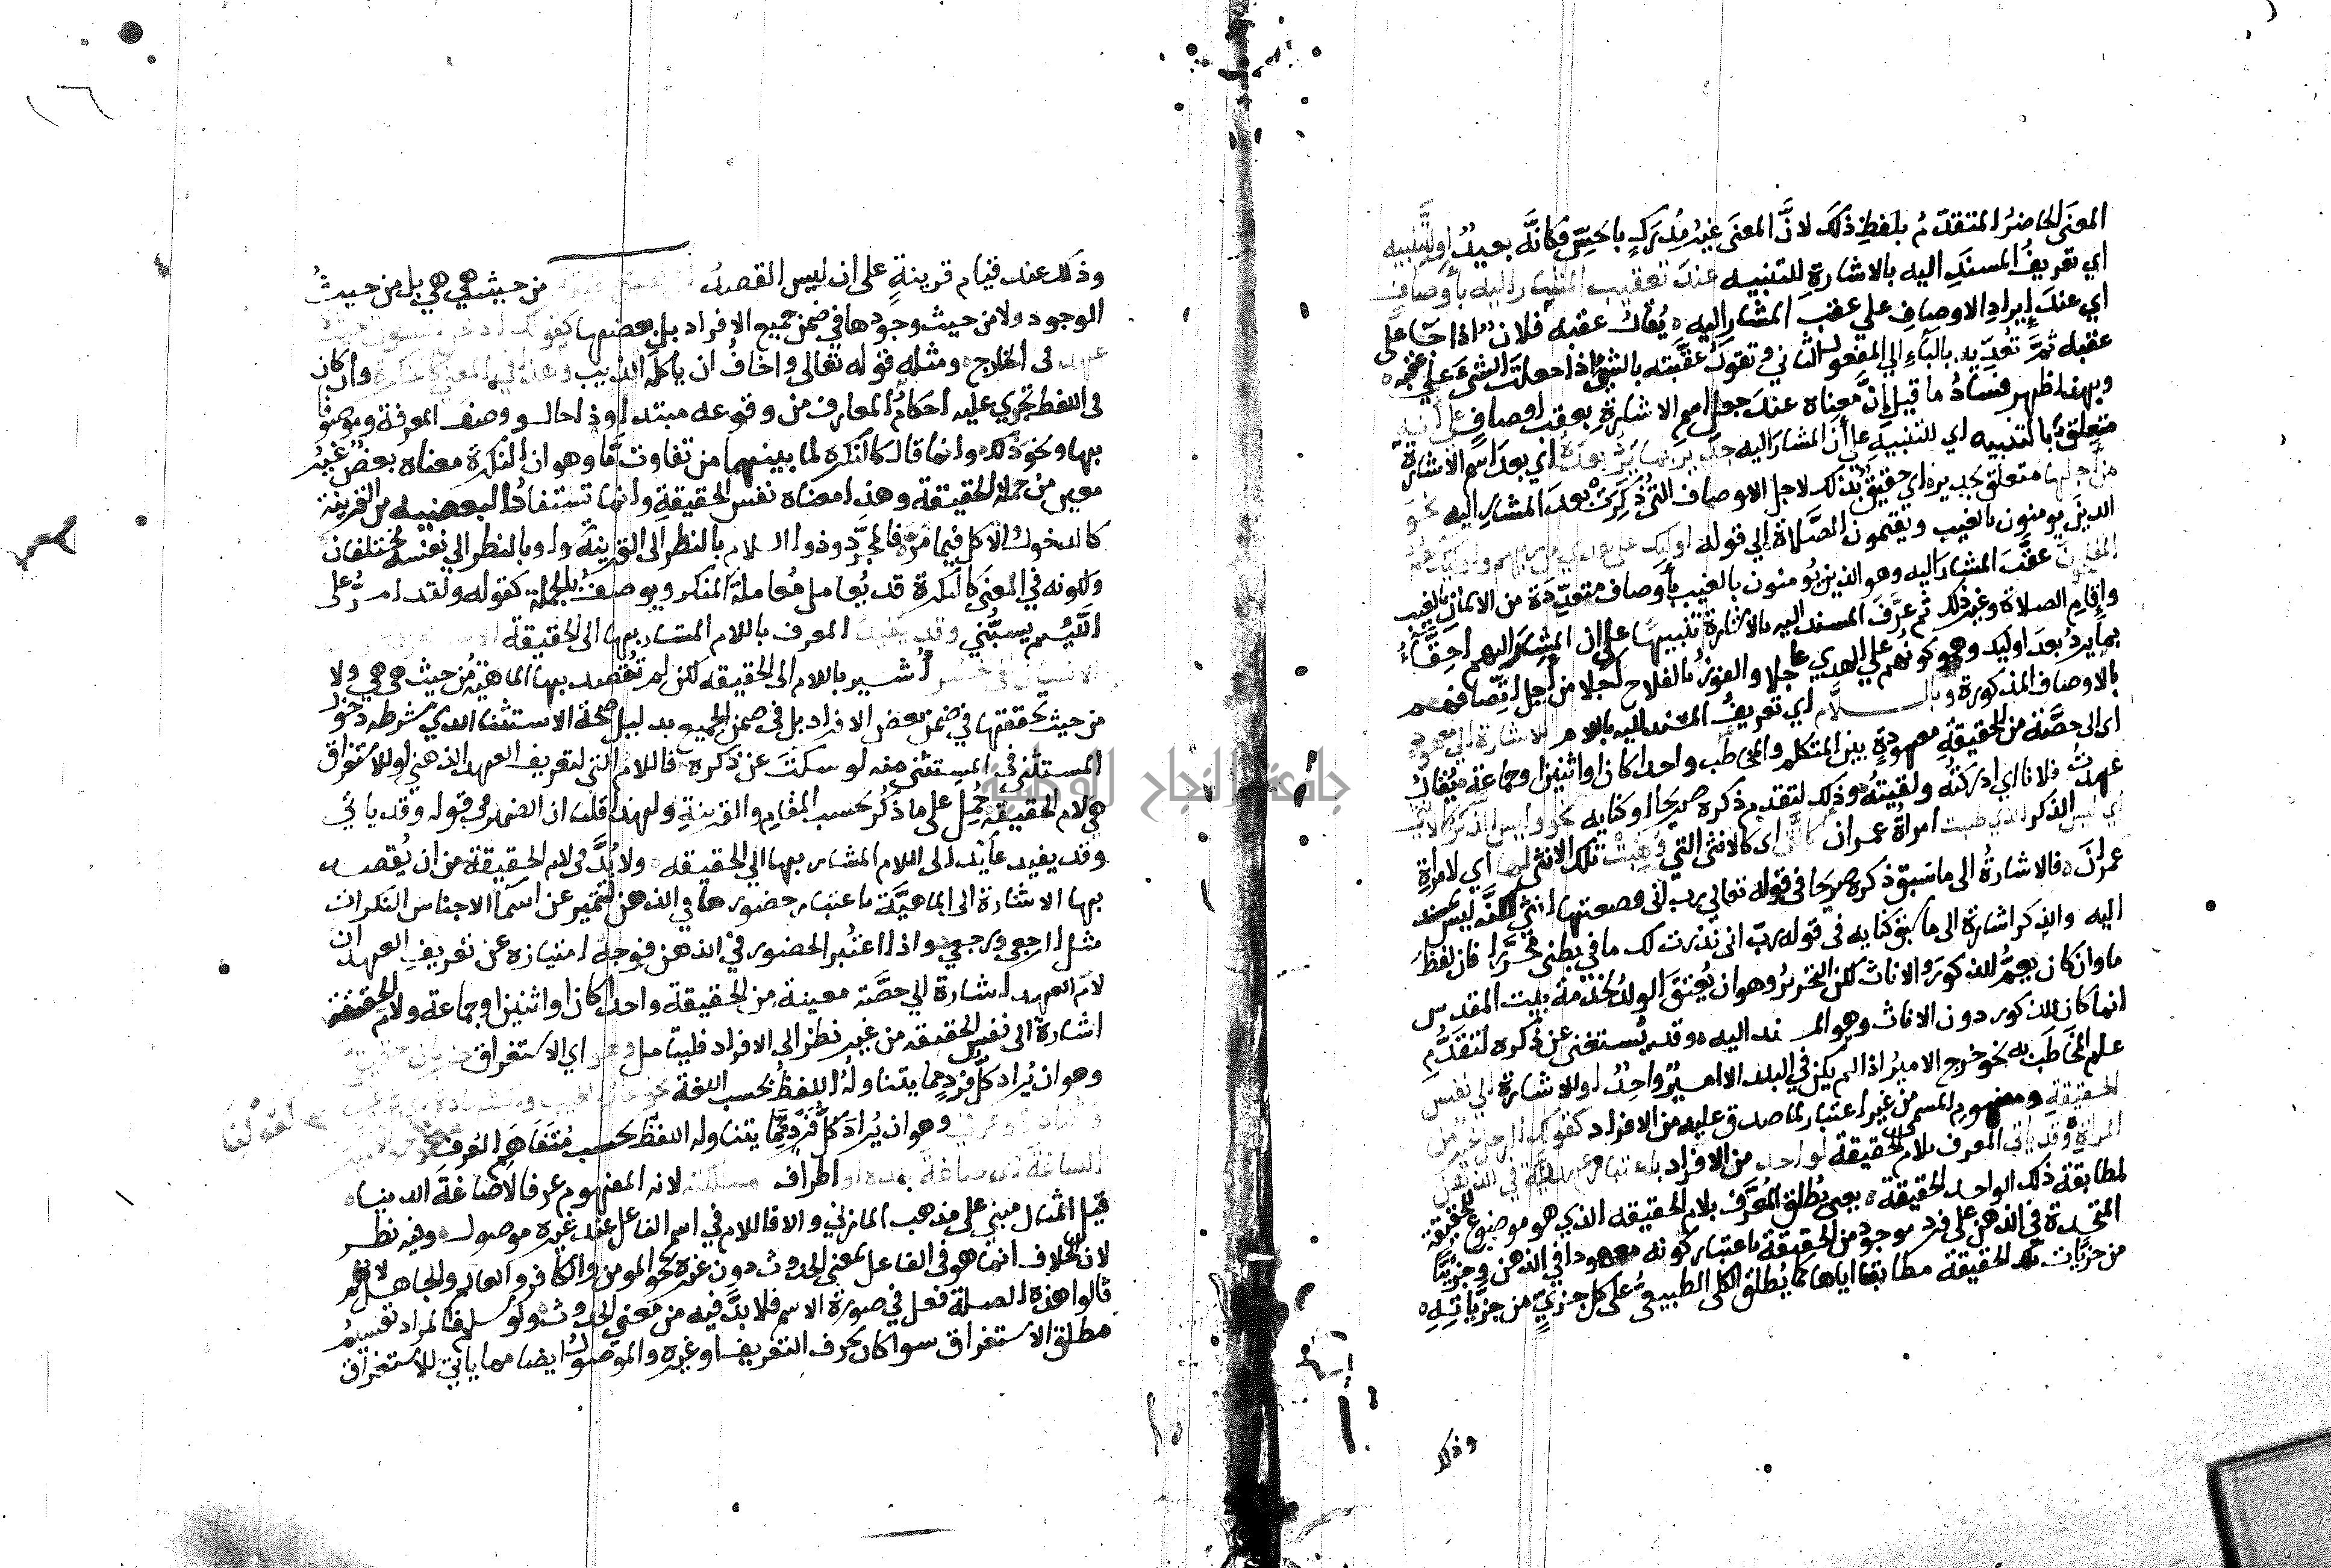 المعنى الحاضر المتقدم بلفظ ذلك لان المعنى غير مدرك بالحس فكانه بعيد او للتنبيه
اي تعريف المسند اليه بالاشارة للتنبيه عند تعقيب المشار اليه باوصاف
اي عند ايراد الاوصاف على عقب المشار اليه يقال عقبه فلان اذا جا على
عقبه ثم تعديه بالباء الى المفعول الثاني وتقول عقبته بالشئ اذا جعلت الشئ على عقبه
وبهذا ظهر فساد ما قيل ان معناه عند جعل اسم الاشارة بعقب اوصاف على انه
متعلق بالتنبيه اي للتنبيه على ان المشار اليه جدير بما يرد بعده اي بعد اسم الاشارة
من اجلها متعلق بجدير اي حقيق بذلك لاجل الاوصاف التي ذكرت بعد المشار اليه نحو
الذين يومنون بالغيب ويقيمون الصلاة الى قوله اوليك على هدى من ربهم واوليك هم
المفلحون عقب المشار اليه وهو الذين يومنون بالغيب باوصاف متعددة من الايمان بالغيب
واقام الصلاة وغير ذلك ثم عرف المسند اليه بالاشارة تنبيها على ان المشار اليهم احقاء
بما يرد بعد اوليك وهو كونهم على الهدى عاجلا والفوز بالفلاح اجلا من اجل اتصافهم
بالاوصاف المذكورة وباللام اي تعريف المسند اليه باللام للاشارة الى معهود
اي الى حصة من الحقيقة معهودة بين المتكلم والمخاطب واحدا كان او اثنين او جماعة يقال
عهدت فلانا اي ادركته ولقيته وذلك لتقدم ذكره صريحا او كناية نحو وليس الذكر كالانثى
اي ليس الذكر الذي طلبت امراة عمران كالتي اي كالانثى التي وهبت تلك الانثى لها اي لامراة
عمران فالاشارة الى ما سبق ذكره صريحا في قوله تعالى رب اني وضعتها انثى لكنه ليس بمسند
اليه والذكر اشارة الى ما سبق كناية في قوله رب اني نذرت لك ما في بطني محررا فان لفظ
ما وان كان يعم الذكور والاناث لكن التحرير وهو ان يعتق الولد لخدمة بيت المقدس
انما كان للذكور دون الاناث وهو المسند اليه وقد يستغنى عن ذكره لتقدم
علم المخاطب به نحو خرج الامير اذا لم يكن في البلد الا امير واحد او للاشارة الى نفس
الحقيقة ومفهوم المسمى من غير اعتبار لما صدق عليه من الافراد كقولك الرجل خير من
المراة وقد ياتي المعرف بلام الحقيقة لواحد من الافراد باعتبار عهديته في الذهن
لمطابقة ذلك الواحد الحقيقة يعني يطلق المعرف بلام الحقيقة الذي هو موضوع للحقيقة
المتحدة في الذهن على فرد موجود من الحقيقة باعتبار كونه معهودا في الذهن وجزئيا
من جزيات تلك الحقيقة مطابقا اياها كما يطلق الكلي الطبيعي على كل جزئي من جزياته
وذلك
١٦
وذلك عند قيام قرينة على ان ليس القصد من حيث هي هي بل من حيث
الوجود ولا من حيث وجودها في ضمن جميع الافراد بل بعضها كقولك ادخل السوق حيث
عهد في الخارج ومثله قوله تعالى واخاف ان ياكله الذيب وهذا في المعنى كالنكرة وان كان
في اللفظ تجري عليه احكام المعارف من وقوعه مبتدا وذا حال ووصف المعرفة وموصوفا
بها ونحو ذلك وانما قال كالنكرة لما بينهما من تفاوت ما وهو ان النكرة معناه بعض غير
معين من جملة الحقيقة وهذا معناه نفس الحقيقة وانما تستفاد البعضية من القرينة
كالدخول والاكل فيما مر فالمجرد وذو اللام بالنظر الى القرينة سواء وبالنظر الى نفسه مختلفان
ولكونه في المعنى كالنكرة قد يعامل معاملة المنكر ويوصف بالجملة كقوله ولقد امر على
اللئيم يسبني وقد يفيد المعرف باللام المشار بها الى الحقيقة الاستغراق نحو ان
الانسان لفي خسر اشير باللام الى الحقيقة لكن لم تقصد بها الماهية من حيث هي هي ولا
من حيث تحققها في ضمن بعض الافراد بل في ضمن الجميع بدليل صحة الاستثنا الذي شرطه دخول
المستثنى في المستثنى منه لو سكت عن ذكره فاللام التي لتعريف العهد الذهني او للاستغراق
هي لام الحقيقة حمل على ما ذكر بحسب المقام والقرينة ولهذا قلنا ان الضمير في قوله وقد ياتي
وقد يفيد عايد الى اللام المشار بها الى الحقيقة ولا بد في لام الحقيقة من ان يقصد
بها الاشارة الى الماهية باعتبار حضورها في الذهن لتتميز عن اسما الاجناس النكرات
مثل الرجعى ورجعى واذا اعتبر الحضور في الذهن فوجه امتيازه عن تعريف العهد ان
لام العهد اشارة الى حصة معينة من الحقيقة واحدا كان او اثنين او جماعة ولام الحقيقة
اشارة الى نفس الحقيقة من غير نظر الى الافراد فليتامل وهو اي الاستغراق ضربان حقيقي
وهو ان يراد كل فرد مما يتناوله اللفظ بحسب اللغة نحو عالم الغيب والشهادة اي كل غيب
وشهادة وعرفي وهو ان يراد كل فرد مما يتناوله اللفظ بحسب متفاهم العرف نحو جمع الامير
الصاغة اي صاغة بلده او اطراف مملكته لانه المفهوم عرفا لا صاغة الدنيا
قيل المثال مبني على مذهب المازني والا فاللام في اسم الفاعل عند غيره موصول وفيه نظر
لان الخلاف انما هو في الفاعل بمعنى الحدوث دون غيره نحو المومن والكافر والعالم والجاهل لانهم
قالوا هذه الصلة فعل في صورة الاسم فلا بد فيه من معنى الحدوث ولو سلم فالمراد تقسيم
مطلق الاستغراق سوا كان بحرف التعريف او غيره والموصول ايضا مما ياتي للاستغراق
جامعة النجاح الوطنية